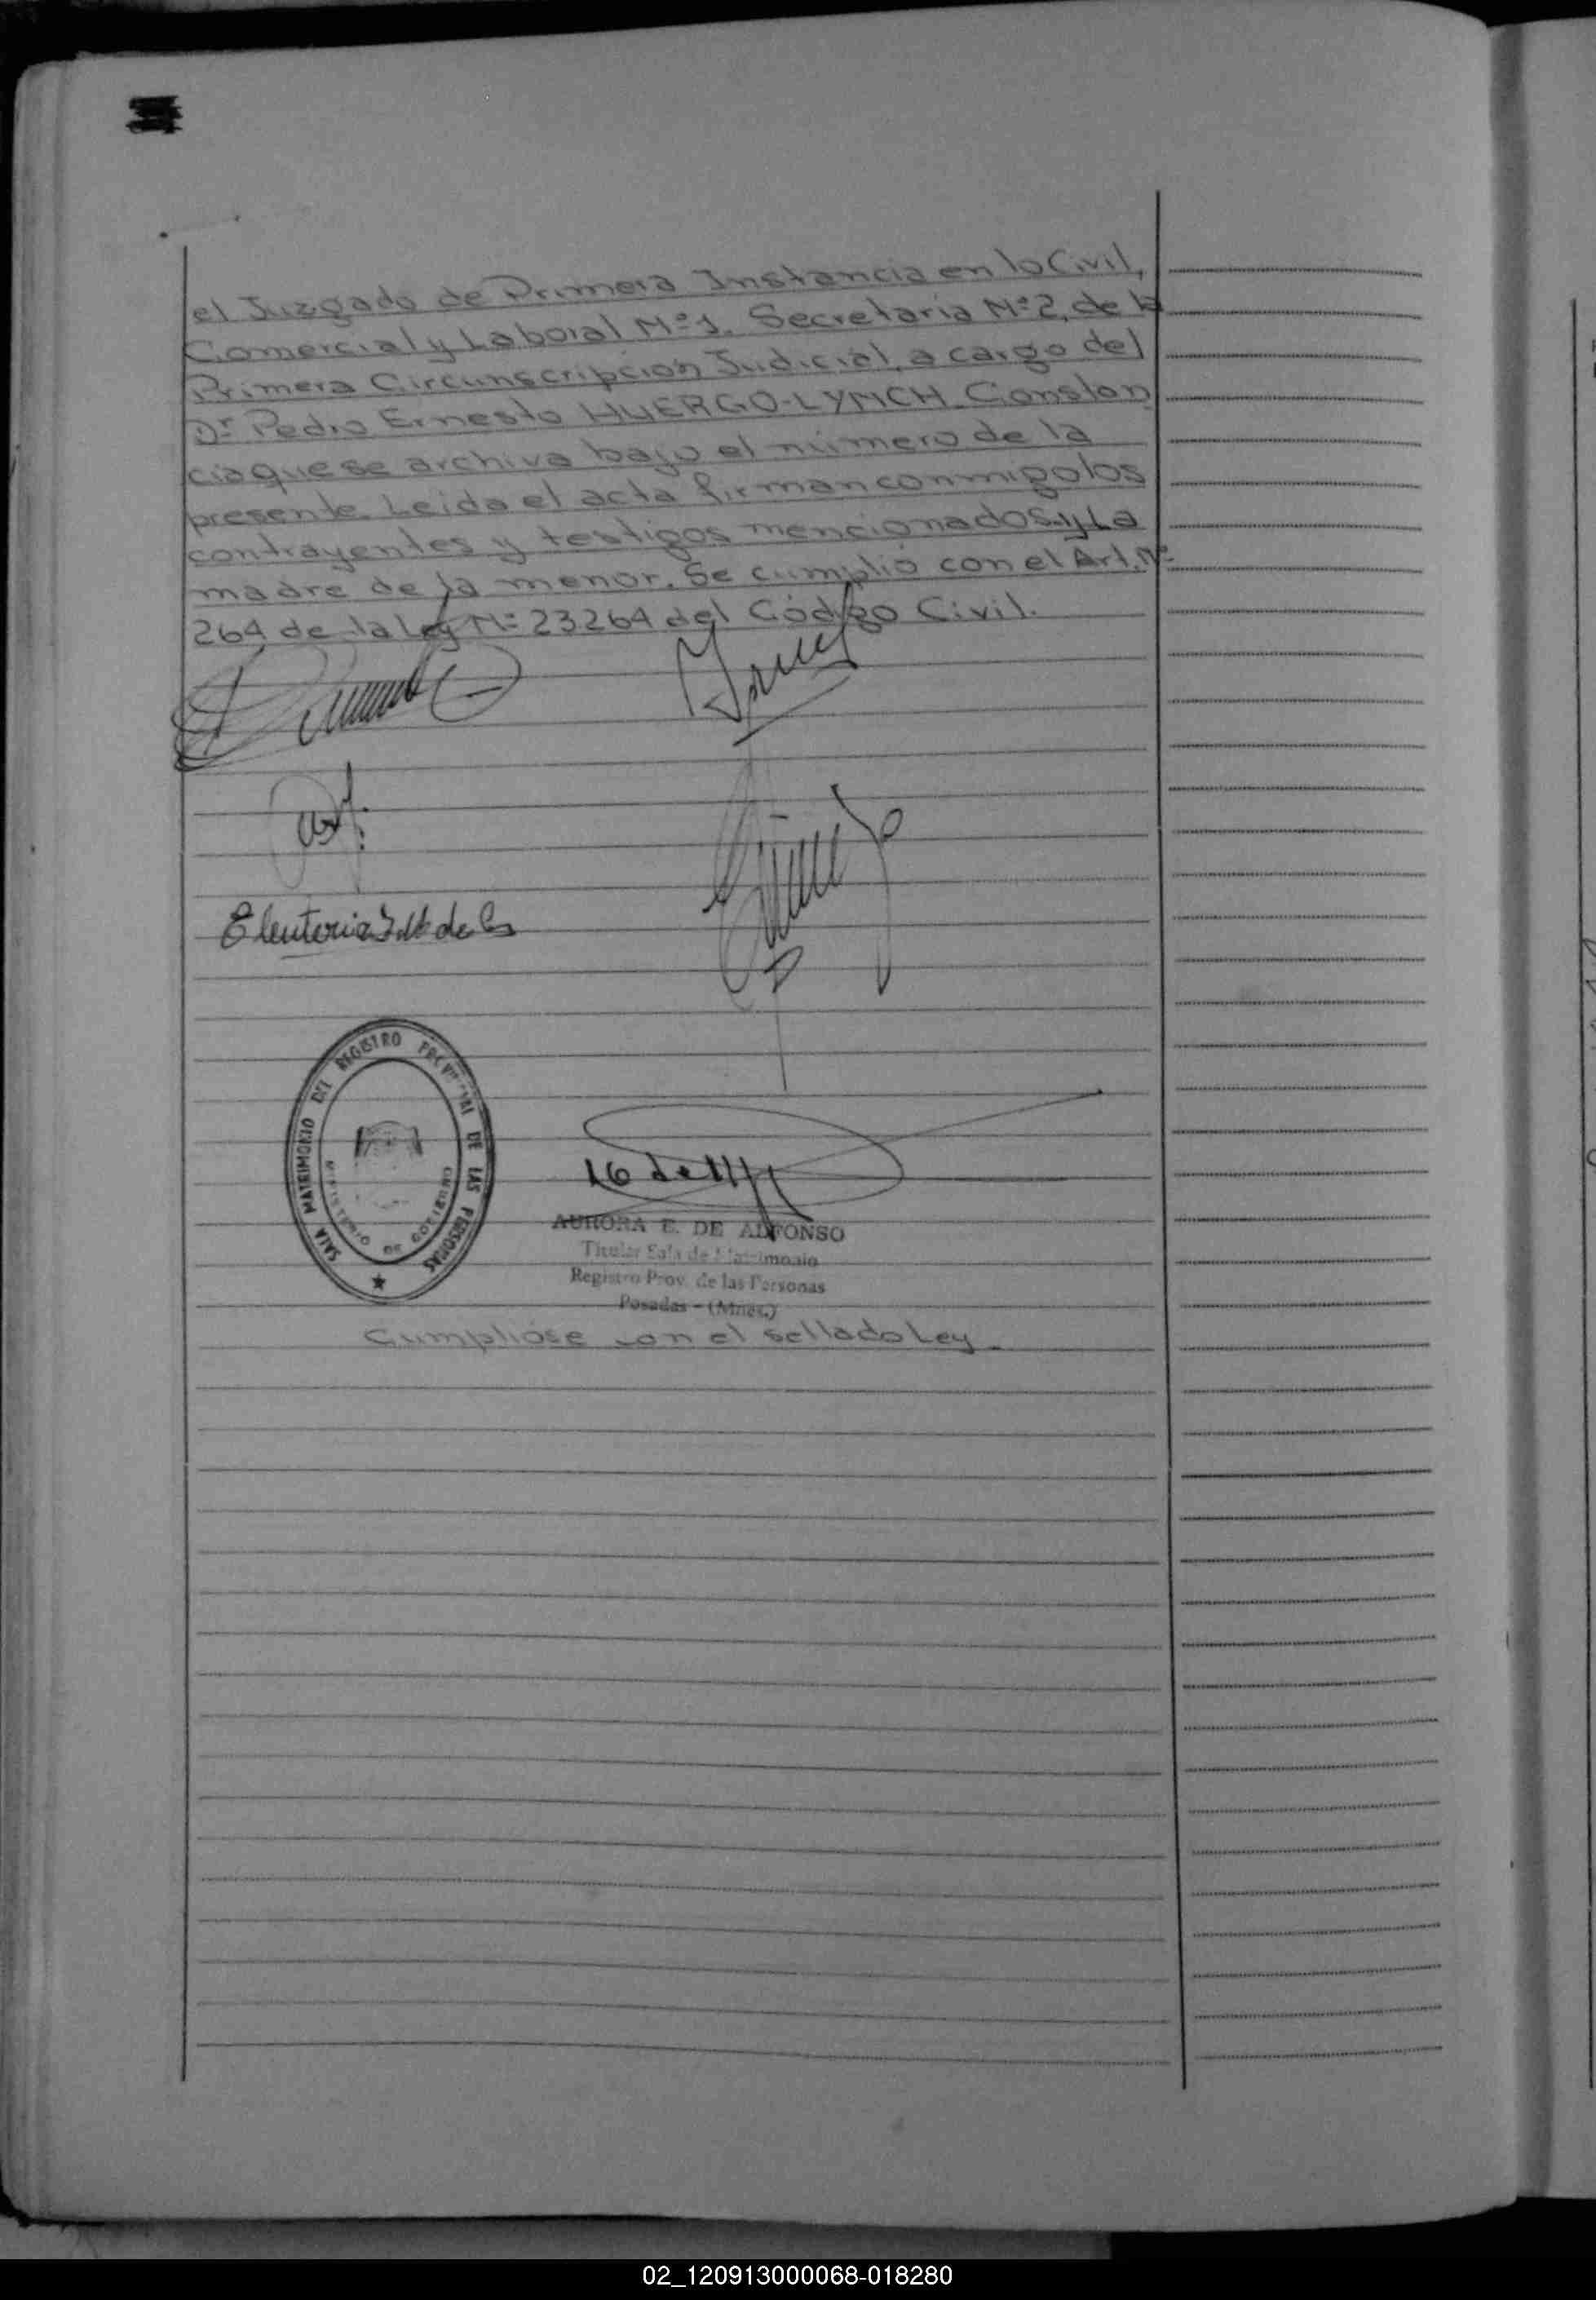 el Juzgado de Primera Instancia en lo Civil,
Comercial y Laboral Nº1. Secretaría Nº2, de la
Primera Circunscripción Judicial, a cargo del
Dr Pedro Ernesto HUERGO-LYNCH. Constan
cia que se archiva bajo el número de la
presente. Leída el acta firman conmigo los
contrayentes y testigos mencionados y La
madre de la menor. Se cumplió con el Art. Nº
264 de la Ley Nº 23264 del Código Civil.
Eleuteria de
SALA MATRIMONIO DEL REGISTRO PROVINCIAL DE LAS PERSONAS
MINISTERIO DE GOBIERNO
AURORA E. DE ALFONSO
Titular Sala de Matrimonio
Registro Prov. de las Personas
Posadas - (Mnes.)
Cumplióse con el sellado Ley.
02_120913000068-018280